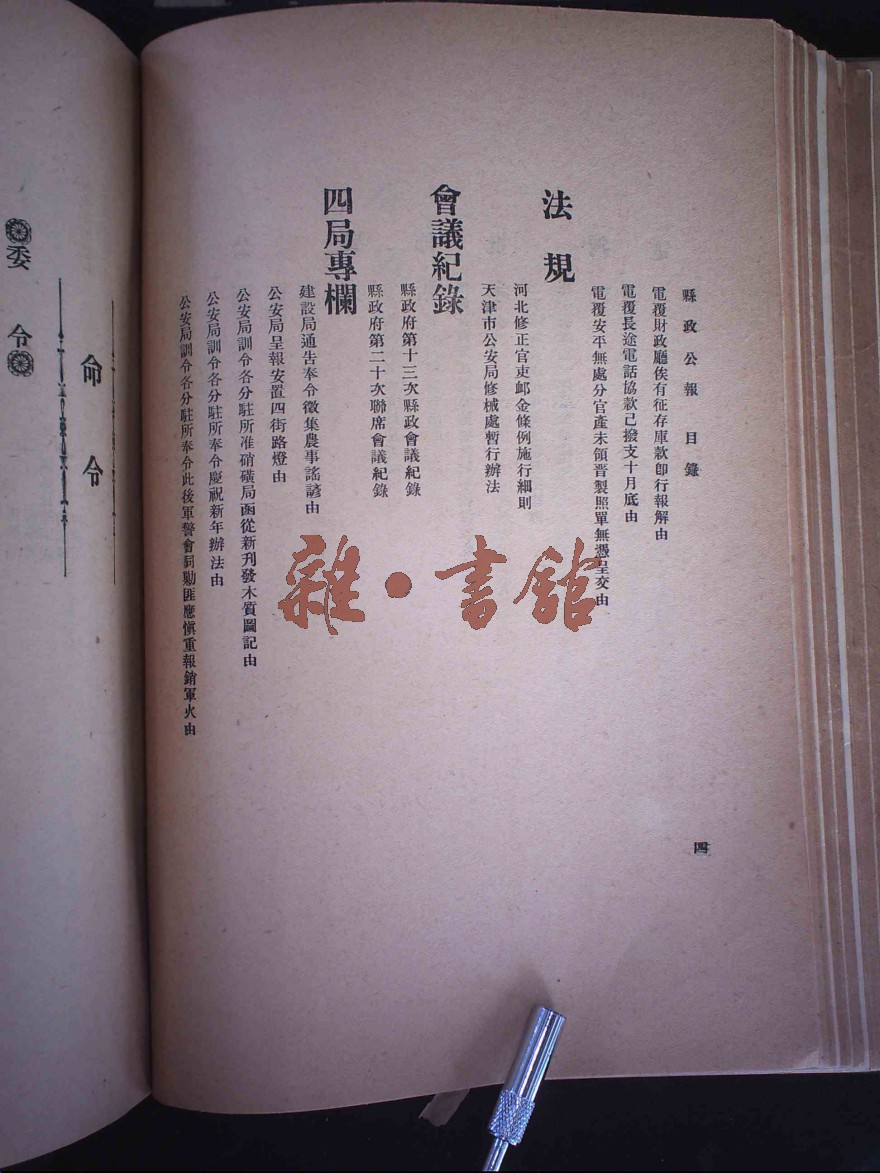 縣政公報 目錄
電覆財政廳俟有征存庫款卽行報解由
電覆長途電話協款已撥支十月底由
電覆安平無處分官產未領晋製照單無憑呈交由
法規
河北修正官吏邺金條例施行細則
天津市公安局修械處暫行辦法
會議紀錄
縣政府第十三次縣政會議紀錄
縣政府第二十次聯席會議紀錄
四局專欄
建設局通告奉令徵集農事謠諺由
公安局呈報安置四街路燈由
公安局訓令各分駐所准硝磺局函從新刊發木質圖記由
公安局訓令各分駐所奉令慶祝新年辦法由
公安局訓令各分駐所奉令此後軍警會同勦匪應愼重報銷軍火由
四
命令
委令
雜·書舘